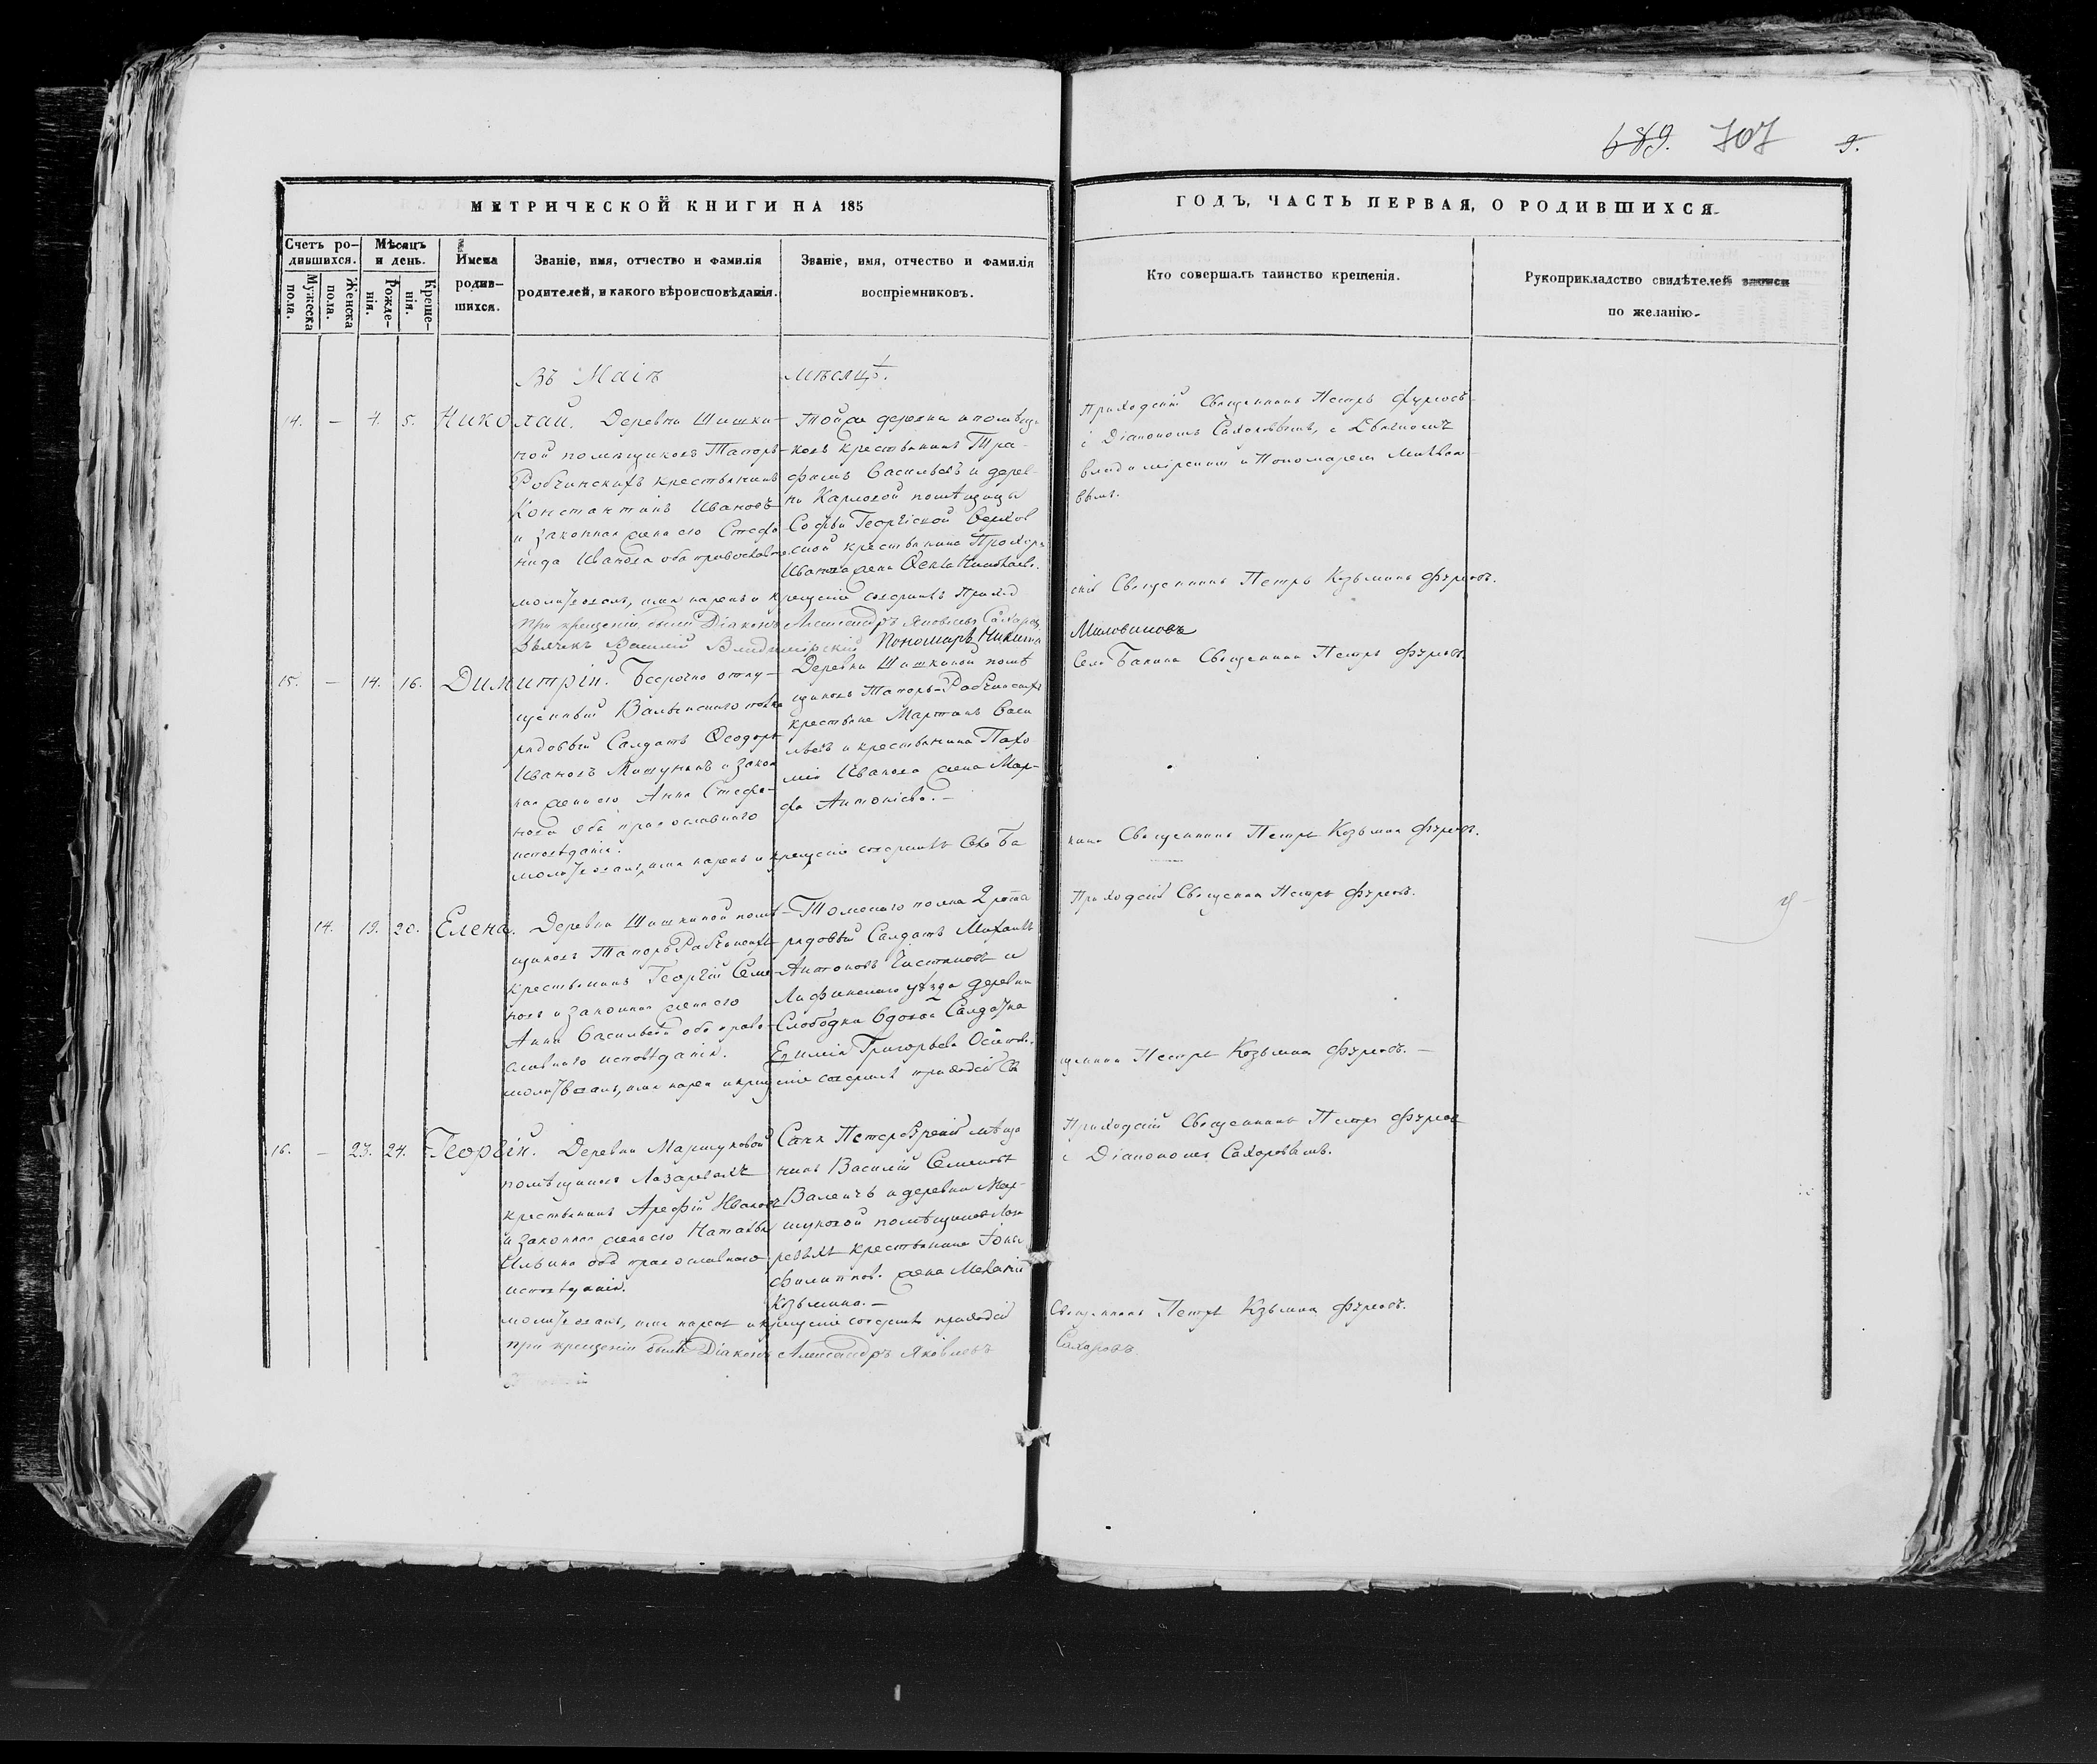 689. 707 9.
МЕТРИЧЕСКОЙ КНИГИ НА 185
ГОДЪ, ЧАСТЬ ПЕРВАЯ, О РОДИВШИХСЯ.
Счетъ ро-
дившихся.
Мужеска
пола.
Женска
пола.
Мѣсяцъ
и день.
Рожде-
нія.
Креще-
нія.
Имена
родив-
шихся.
Званіе, имя, отчество и фамилія
родителей, и какого вѣроисповѣданія.
Званіе, имя, отчество и фамилія
воспріемниковъ.
Кто совершалъ таинство крещенія.
Рукоприкладство свидѣтелей записи
по желанію.
Въ Маіѣ мѣсяцѣ.
14. — 4. 5. Николай.
Деревни Шишки-
ной помѣщиковъ Тапоръ-
Робчинскихъ крестьянинъ
Константинъ Ивановъ
и законная жена его Стефа-
нида Иванова оба православн.
Тойже деревни помѣщи-
ковъ крестьянинъ Тра-
фимъ Васильевъ и дерев-
ни Карповой помѣщицы
Софьи Георгіевой
крестьянина Прохора
Иванова жена Ѳекла Николаева.
Приходскій Священникъ Петръ Фурсовъ
с Діакономъ Сахаровымъ, с Дьячкомъ
Владимірскимъ и Пономаремъ Милова-
вымъ.
молитвовалъ, имя нарекъ и крещеніе совершилъ Приход
скій Священникъ Петръ Козьминъ Фурсовъ.
При крещеніи были Діаконъ Александръ Яковлевъ Сахаровъ
Дьячекъ Василій Владимірскій Пономарь Никита
Миловановъ
15. — 14. 16. Димитрій.
Безсрочно отпу-
щенный полка
рядовый Салдатъ Ѳеодоръ
Ивановъ и закон
ная жена его Анна Стефа-
нова оба православнаго
исповѣданія.
Деревни Шишкиной помѣ
щиковъ Тапоръ-Рабчинскихъ
крестьяне Мартинъ Васи
льевъ и крестьянина Пахо
мія Иванова жена Мар-
фа Антоніева. —
Села Бакина Священникъ Петръ Фурсовъ.
молитвовалъ, имя нарекъ и крещеніе совершилъ Села Ба
кина Священникъ Петръ Козьминъ Фурсовъ.
14. 19. 20. Елена.
Деревни Шишкиной помѣ-
щиковъ Тапоръ Рабчинскихъ
крестьянинъ Георгій Семе-
новъ и законная жена его
Анна Васильева оба право-
славнаго исповѣданія.
Томскаго полка 2 рота
рядовый Салдатъ Михаилъ
Антоновъ и
уѣзда деревни
Слободки вдовая Салдатка
Григорьева
Приходскій Священникъ Петръ Фурсовъ.
молитвовалъ, имя нарекъ и крещеніе совершилъ приходскій Св
щенникъ Петръ Козьминъ Фурсовъ. —
16. — 23. 24. Георгій.
Деревни Маршуковой
помѣщиковъ Лазаревыхъ
крестьянинъ Арефій Ивановъ
и законная жена его Наталья
Ильина оба православнаго
исповѣданія.
Санк Петербургскій мѣща
нинъ Василій Семеновъ
и деревни Мар-
шуковой помѣщиковъ Лаза
ревыхъ крестьянина Іоны
Филиппова жена Меланія
Козьмина. —
Приходскій Священникъ Петръ Фурсовъ
с Діакономъ Сахаровымъ.
молитвовалъ, имя нарекъ и крещеніе совершилъ приходскій
Священникъ Петръ Козьминъ Фурсовъ.
При крещеніи былъ Діаконъ Александръ Яковлевъ
Сахаровъ.